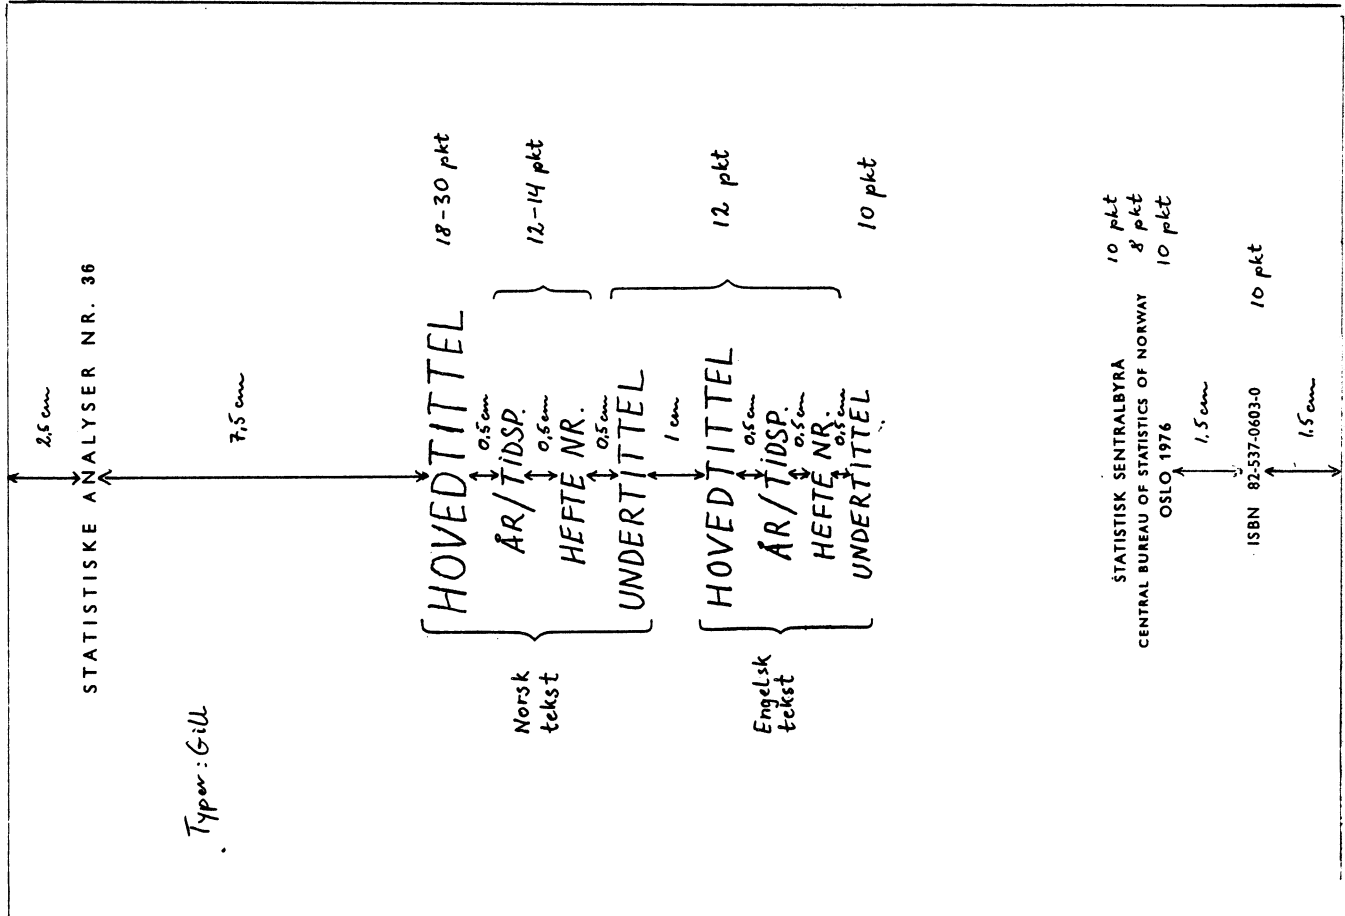 2,5 cm
STATISTISKE ANALYSER NR. 36
Typer: Gill
7,5 cm
Norsk
tekst
HOVEDTITTEL
18-30 pkt
0,5 cm
ÅR/TIDSP.
12-14 pkt
0,5 cm
HEFTE NR.
0,5 cm
UNDERTITTEL
1 cm
Engelsk
tekst
HOVEDTITTEL
12 pkt
0,5 cm
ÅR/TIDSP.
0,5 cm
HEFTE NR.
0,5 cm
UNDERTITTEL
10 pkt
STATISTISK SENTRALBYRÅ 10 pkt
CENTRAL BUREAU OF STATISTICS OF NORWAY 8 pkt
OSLO 1976 10 pkt
1,5 cm
ISBN 82-537-0603-0 10 pkt
1,5 cm